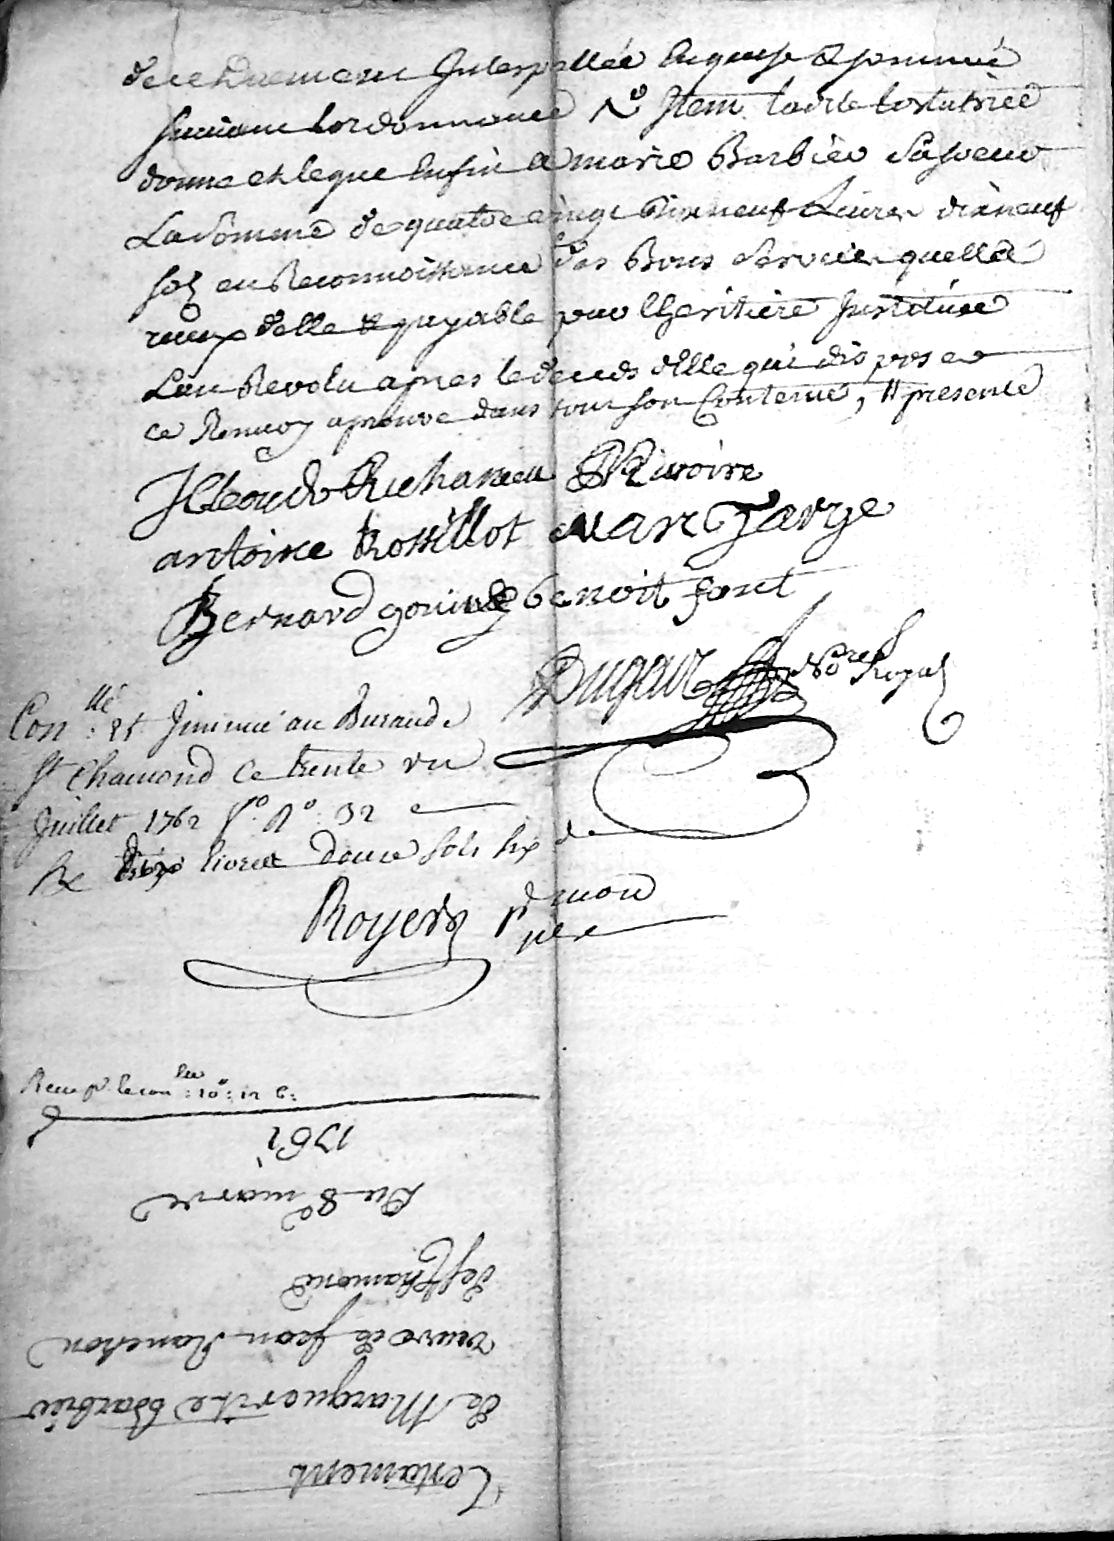 de ce duement Interpellée Enquise & sommée
suivant lordonnance Item ladite testatrice
donne et legue Enfin a marie Barbier sa soeur
La somme de quatre vingt dixneuf Livres dixneuf
sols en Reconnoissance des Bons services quelle a
reçus delle & payable par lheritiere Instituée
Lan Revolu apres le deceds delle qui dispose
ce Renvoy aprouvé dans tout son Contenu, presente
Rivoire
antoine Rossillot Marc farge
Bernard gonin benoit font
Dugar No.re Royal
Con.llé et Insinué au Bureau de
St Chamond ce trente un
Juillet 1762 f.o R.o 32
Rx dix livres douze sols six d
Royer p.r mon
pere
Recu p.r le con 10.. 12 6:
Testament
de Marguerite Barbier
veuve de Jean Planchon
de St Chamond
Du 8.e mars
1761